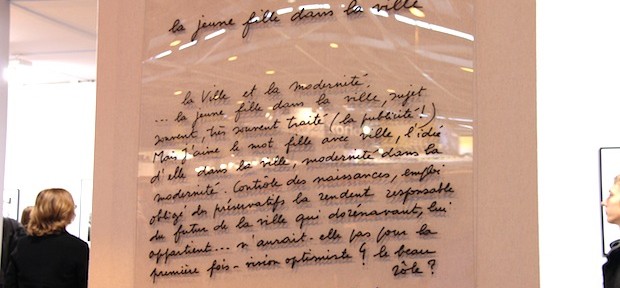 la jeune fille dans la ville
la Ville et la modernité.
... la jeune fille dans la ville, sujet
souvent, très souvent traité (la publicité!)
Mais j'aime le mot fille avec ville, l'idée
d'elle dans la ville, modernité dans la
modernité. Contrôle des naissances, emploi
obligé des préservatifs la rendent responsable
du futur de la ville qui dorénavant, lui
appartient... n'aurait-elle pas pour la
première fois - vision optimiste! le beau
rôle?